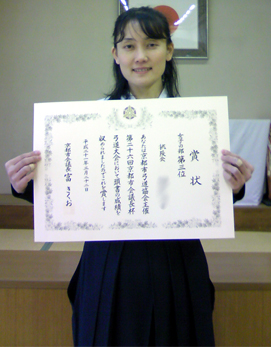 賞状
女子の部 第三位
伏陵会
あなたは京都市弓道協会主催
第二十六回京都市会議長杯
弓道大会において頭書の成績を
収められましたのでこれを賞します
平成二十一年三月二十二日
京都市会議長 富 きくお